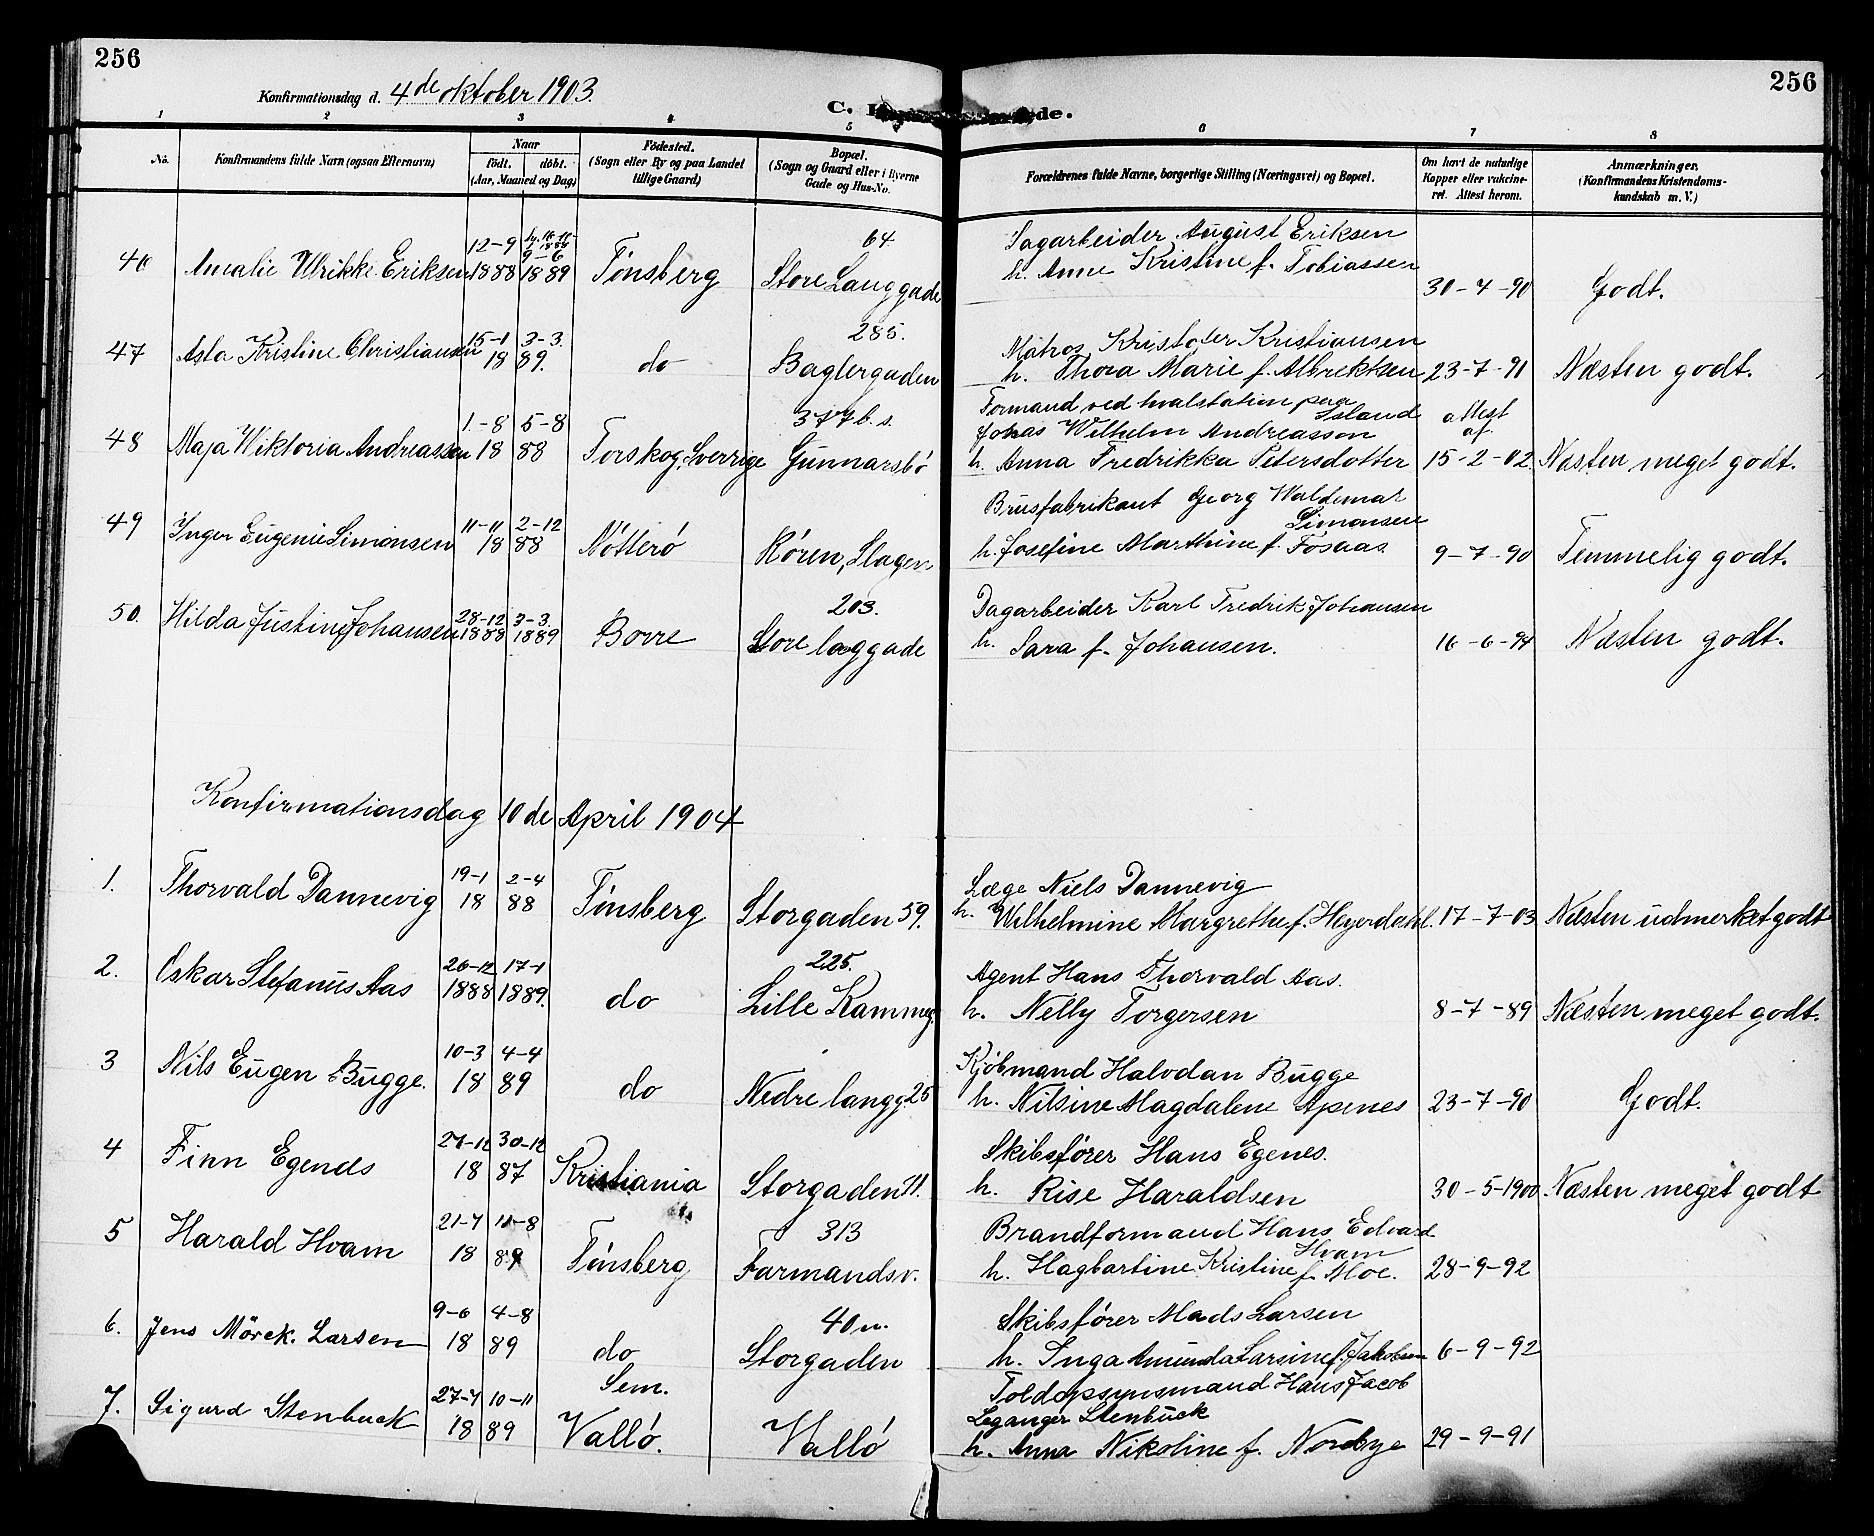 256
256
Konfirmationsdag d. 4de oktober 1903.
C.
1 2 3 4 5 6 7 8
No. Konfirmandens fulde Navn (ogsaa Efternavn) Naar født. døbt. (Aar, Maaned og Dag) Fødested. (Sogn eller By og paa Landet tillige Gaard) Bopæl. (Sogn og Gaard eller i Byerne Gade og Hus-No. Forældrenes fulde Navne, borgerlige Stilling (Næringsvei) og Bopæl. Om havt de naturlige Kopper eller vakcineret. Attest herom. Anmærkninger. (Konfirmandens Kristendomskundskab m. V.)
12-9 9-6 64 Sagarbeider August Eriksen
46 Amalie Ulrikke Eriksen 1888 1889 Tønsberg Store Langgade h. Anne Kristine f. Tobiassen 30-4-90 Godt.
15-1 3-3. 285. Matros Kristofer Kristiansen
47 Asta Kristine Christiansen 18 89. do Baglergaden h. Thora Marie f. Albrektsen 23-7-91 Næsten godt.
1-8 5-8 377 b. s. Formand ved hvalstation paa Island attest
Johas Wilhelm Andreasson af
48 Maja Wiktoria Andreassen 18 88 Torskog, Sverrige Gunnarsbø h. Anna Fredrikka Petersdotter 15-2-02. Næsten meget godt.
11-11 2-12 Brusfabrikant Georg Waldemar Simonsen
49 Inger Eugenie Simonsen 18 88 Nøtterø Røren, Slagen h. Josefine Marthine f. Fosaas 9-7-90 Temmelig godt.
28-12 3-3. 203. Dagarbeider Karl Fredrik Johansen
50. Hilda Justine Johansen 1888 1889 Borre Store laggade h. Sara f. Johansen. 16-6-94 Næsten godt.
Konfirmationsdag 10de April 1904
19-1 2-4 Læge Niels Dannevig
1. Thorvald Dannevig 18 88 Tønsberg Storgaden 59. h. Wilhelmine Margrethe f. Heyerdahl. 17-7-03 Næsten udmerket godt
26-12 17-1 225. Agent Hans Thorvald Aas.
2. Oskar Stefanus Aas 1888 1889. do Lille Kammeg. h. Nelly Torgersen 8-7-89 Næsten meget godt.
10-3 4-4 Kjøbmand Halvdan Bugge
3 Nils Eugen Bugge. 18 89 do Nedre langg. 25 h. Nilsine Magdalene Apenes 23-7-90 Godt.
27-12 30-12 Skibsfører Hans Egenes.
4 Finn Egends 18 87 Kristiania Storgaden 11. h. Rise Haraldsen 30-5-1900 Næsten meget godt
21-7 11-8 313 Brandformand Hans Edvard Hvam
5 Harald Hvam 18 89 Tønsberg Farmandsv. h. Hagbartine Kristine f. Moe. 28-9-92
9-6 4-8 40 n. Skibsfører Mads Larsen
6. Jens Mörck. Larsen 18 89 do Storgaden h. Inga Amunda Larsine f. Jakobsen 6-9-92
27-7 10-11 Sem. Toldopsynsmand Hans Jacob
Leganger Stenbuck
7. Sigurd Stenbuck 18 89 Vallö. Vallö h. Anna Nikoline f. Nordbye 29-9-91